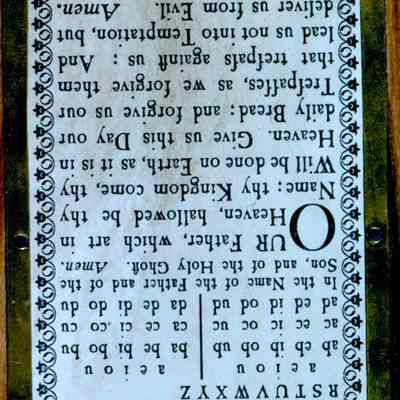 RSTUVWXYZ
a e i o u a e i o u
ab eb ib ob ub ba be bi bo bu
ac ec ic oc uc ca ce ci co cu
ad ed id od ud da de di do du
In the Name of the Father and of the
Son, and of the Holy Ghoſt. Amen.
OUR Father, which art in
Heaven, hallowed be thy
Name; thy Kingdom come, thy
Will be done on Earth, as it is in
Heaven. Give us this Day our
daily Bread; and forgive us our
Treſpaſſes, as we forgive them
that treſpaſs againſt us : And
lead us not into Temptation, but
deliver us from Evil. Amen.